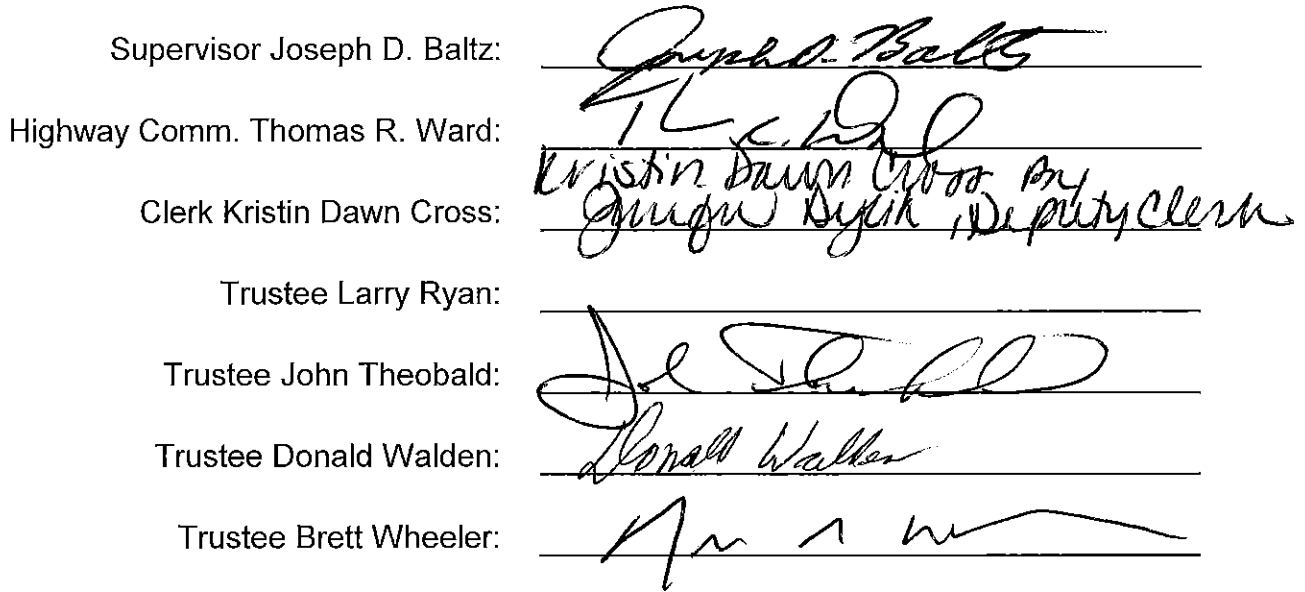 Supervisor Joseph D. Baltz: Joseph D. Baltz
Highway Comm. Thomas R. Ward:
Kristin Dawn Cross By
Clerk Kristin Dawn Cross: , Deputy Clerk
Trustee Larry Ryan:
Trustee John Theobald:
Trustee Donald Walden: Donald Walden
Trustee Brett Wheeler: